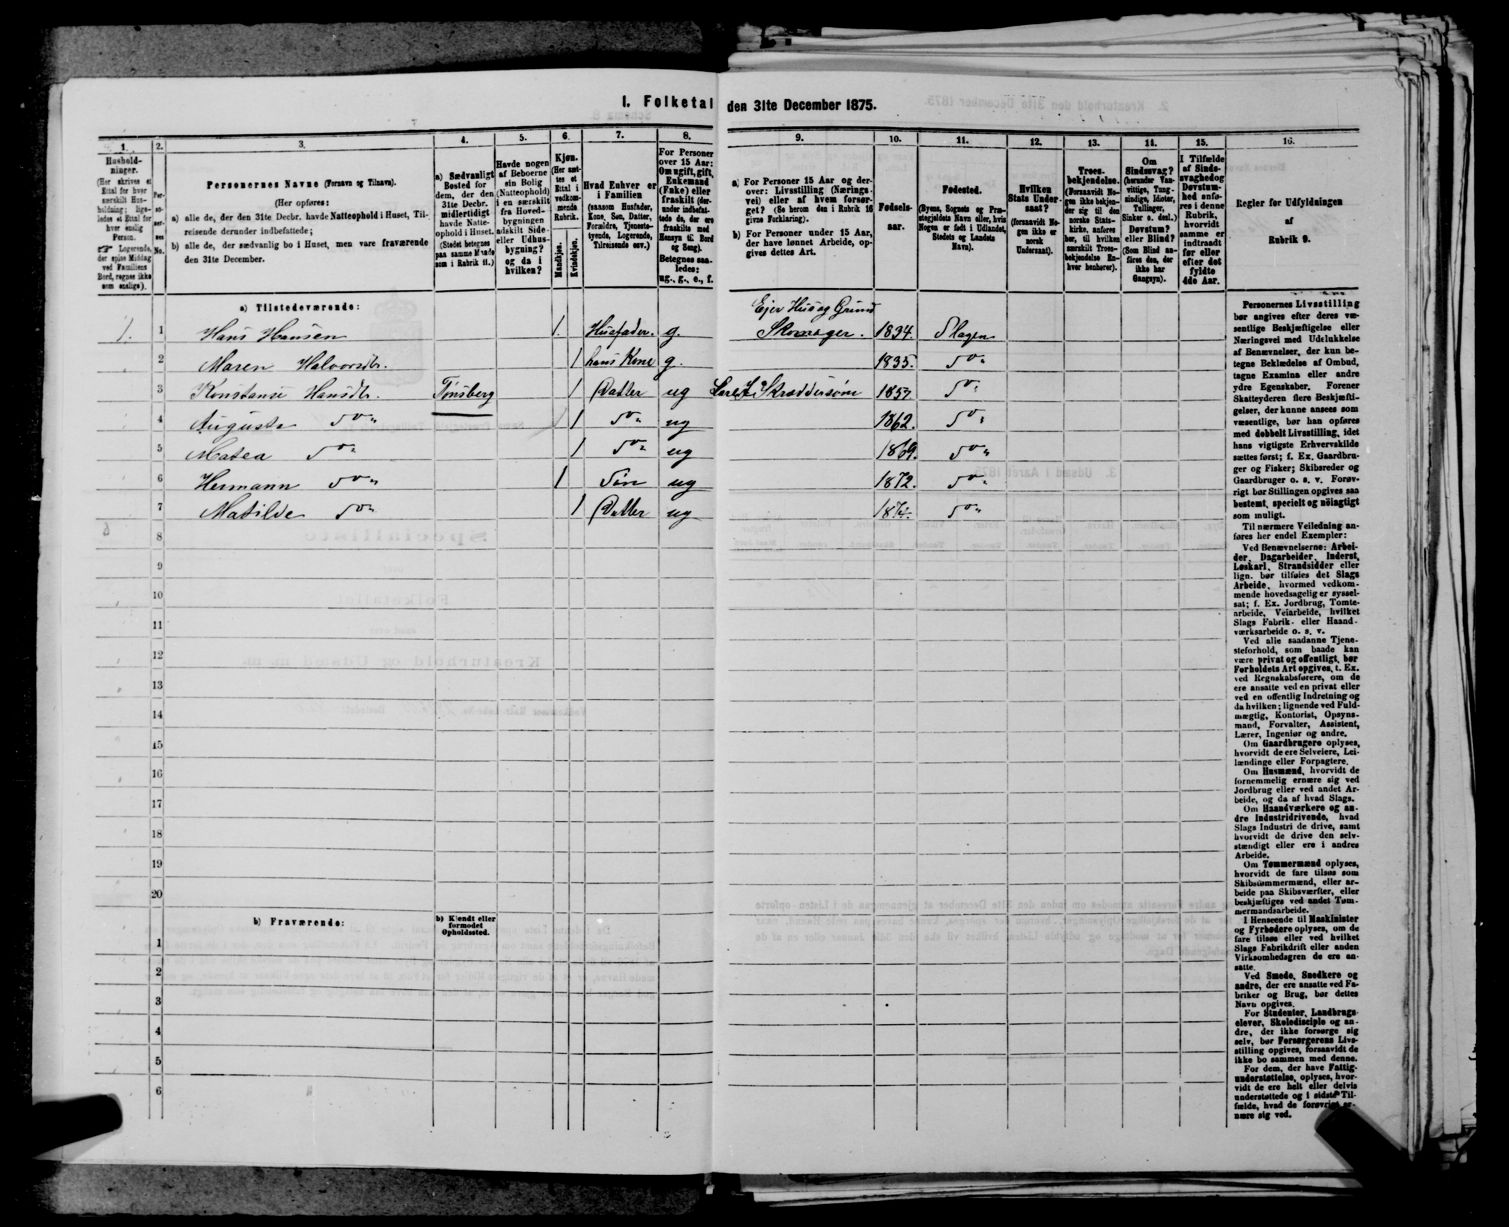 I. Folketal den 31te December 1875.
1. 2. 3. 4. 5. 6. 7. 8. 9. 10. 11. 12. 13. 14. 15. 16.
Hushold-
ninger.
(Her skrives et
Ettal for hver
særskilt Hus-
holdning; lige-
ledes et Ettal for
hver enslig
Person.
☞ Logerende,
der spise Middag
ved Familiens
Bord, regnes ikke
som enslige).
Per-
so-
ner-
nes
No.
Personernes Navne (Fornavn og Tilnavn).
(Her opføres:
a) alle de, der den 31te Decbr. havde Natteophold i Huset, Til-
reisende derunder indbefattede;
b) alle de, der sædvanlig bo i Huset, men vare fraværende
den 31te December.
a) Sædvanligt
Bosted for
dem, der den
31te Decbr.
midlertidigt
havde Natte-
ophold i Huset.
(Stedet betegnes
paa samme Maade
som i Rubrik 11.)
Havde nogen
af Beboerne
sin Bolig
(Natteophold)
i en særskilt
fra Hoved-
bygningen
adskilt Side-
eller Udhus-
bygning?
og da i
hvilken?
Kjøn.
(Her sæt-
tes et
Ettal i
vedkom-
mende
Rubrik.
Mandkjøn.
Kvindekjøn.
Hvad Enhver er
i Familien
(saasom Husfader,
Kone, Søn, Datter,
Forældre, Tjeneste-
tyende, Logerende,
Tilreisende osv.)
For Personer
over 15 Aar:
Om ugift, gift,
Enkemand
(Enke) eller
fraskilt (der-
under indbefat-
tede de, der ere
fraskilte med
Hensyn til Bord
og Seng).
Betegnes saa-
ledes:
ug., g., e., f.
a) For Personer 15 Aar og der-
over: Livsstilling (Nærings-
vei) eller af hvem forsør-
get? (Se herom den i Rubrik 16
givne Forklaring).
b) For Personer under 15 Aar,
der have lønnet Arbeide, op-
gives dettes Art.
Fødsels-
aar.
Fødested.
(Byens, Sognets og Præ-
stegjeldets Navn eller, hvis
Nogen er født i Udlandet,
Stedets og Landets
Navn).
Hvilken
Stats Under-
saat?
(forsaavidt No-
gen ikke er
norsk
Undersaat).
Troes-
bekjendelse.
(Forsaavidt No-
gen ikke bekjen-
der sig til den
norske Stats-
kirke, anføres
her, til hvilken
særskilt Troes-
bekjendelse En-
hver henhører).
Om
Sindssvag?
(herunder Van-
vittige, Tung-
sindige, Idioter,
Tullinger,
Sinker o. desl.)
Døvstum?
eller Blind?
(Som Blind an-
føres den, der
ikke har
Gangsyn).
I Tilfælde
af Sinds-
svaghed og
Døvstum-
hed anfø-
res i denne
Rubrik,
hvorvidt
samme er
indtraadt
før eller
efter det
fyldte
4de Aar.
Regler for Udfyldningen
af
Rubrik 9.
a) Tilstedeværende:
Eier Hus og Grund
1. 1 Hans Hansen 1. Husfader. g. Skomager. 1834. Slagen
2 Maren Halvorsdtr. 1 hans Kone g. 1835. do
3 Konstanse Hansdtr. Tønsberg 1 Datter ug 1857 do
4 Auguste do 1 do ug 1862. do
5 Matea do 1 do ug 1869. do
6 Hermann do 1 Søn ug 1872. do
7 Matilde do 1 Datter ug do
8
9
10
11
12
13
14
15
16
17
18
19
20
b) Fraværende:
b) Kjendt eller
formodet
Opholdssted.
1
2
3
4
5
6
Personernes Livsstilling
bør angives efter deres væ-
sentlige Beskjæftigelse eller
Næringsvei med Udelukkelse
af Benævnelser, der kun be-
tegne Beklædelse af Ombud,
tagne Examina eller andre
ydre Egenskaber. Forener
Skatteyderen flere Beskjæfti-
gelser, der kunne ansees som
væsentlige, bør han opføres
med dobbelt Livsstilling, idet
hans vigtigste Erhvervskilde
sættes først; f. Ex. Gaardbru-
ger og Fisker; Skibsreder og
Gaardbruger o. s. v. Forøv-
rigt bør Stillingen opgives saa
bestemt, specielt og nøiagtigt
som muligt.
Til nærmere Veiledning an-
føres her endel Exempler:
Ved Benævnelserne: Arbei-
der, Dagarbeider, Inderst,
Løskarl, Strandsidder eller
lign. bør tilføies det Slags
Arbeide, hvormed vedkom-
mende hovedsagelig er syssel-
sat; f. Ex. Jordbrug, Tomte-
arbeide, Veiarbeide, hvilket
Slags Fabrik- eller Haand-
værksarbeide o. s. v.
Ved alle saadanne Tjene-
steforhold, som baade kan
være privat og offentligt, bør
Forholdets Art opgives, t. Ex.
ved Regnskabsførere, om de
ere ansatte ved en privat eller
ved en offentlig Indretning og
da hvilken; lignende ved Fuld-
mægtig, Kontorist, Opsyns-
mand, Forvalter, Assistent,
Lærer, Ingeniør og andre.
Om Gaardbrugere oplyses,
hvorvidt de ere Selveiere, Lei-
lændinge eller Forpagtere.
Om Husmænd, hvorvidt de
fornemmelig ernære sig ved
Jordbrug eller ved andet Ar-
beide, og da af hvad Slags.
Om Haandværkere og an-
dre Industridrivende, hvad
Slags Industri de drive, samt
hvorvidt de drive den selv-
stændigt eller ere i andres
Arbeide.
Om Tømmermænd oplyses,
hvorvidt de fare tilsøs som
Skibstømmermænd, eller ar-
beide paa Skibsværfter, eller
beskjæftiges ved andet Tøm-
mermandsarbeide.
I Henseende til Maskinister
og Fyrbødere oplyses, om de
fare tilsøs eller ved hvilket
Slags Fabrikdrift eller anden
Virksomhedsgren de ere an-
satte.
Ved Smede, Snedkere og
andre, der ere ansatte ved Fa-
briker og Brug, bør dettes
Navn opgives.
For Studenter, Landbrugs-
elever, Skoledisciple og an-
dre, der ikke forsørge sig
selv, bør Forsørgerens Livs-
stilling opgives, forsaavidt de
ikke bo sammen med denne.
For dem, der have Fattig-
understøttelse, oplyses, hvor-
vidt de ere helt eller delvis
understøttede og i sidste Til-
fælde, hvad de forøvrigt er-
nære sig ved.